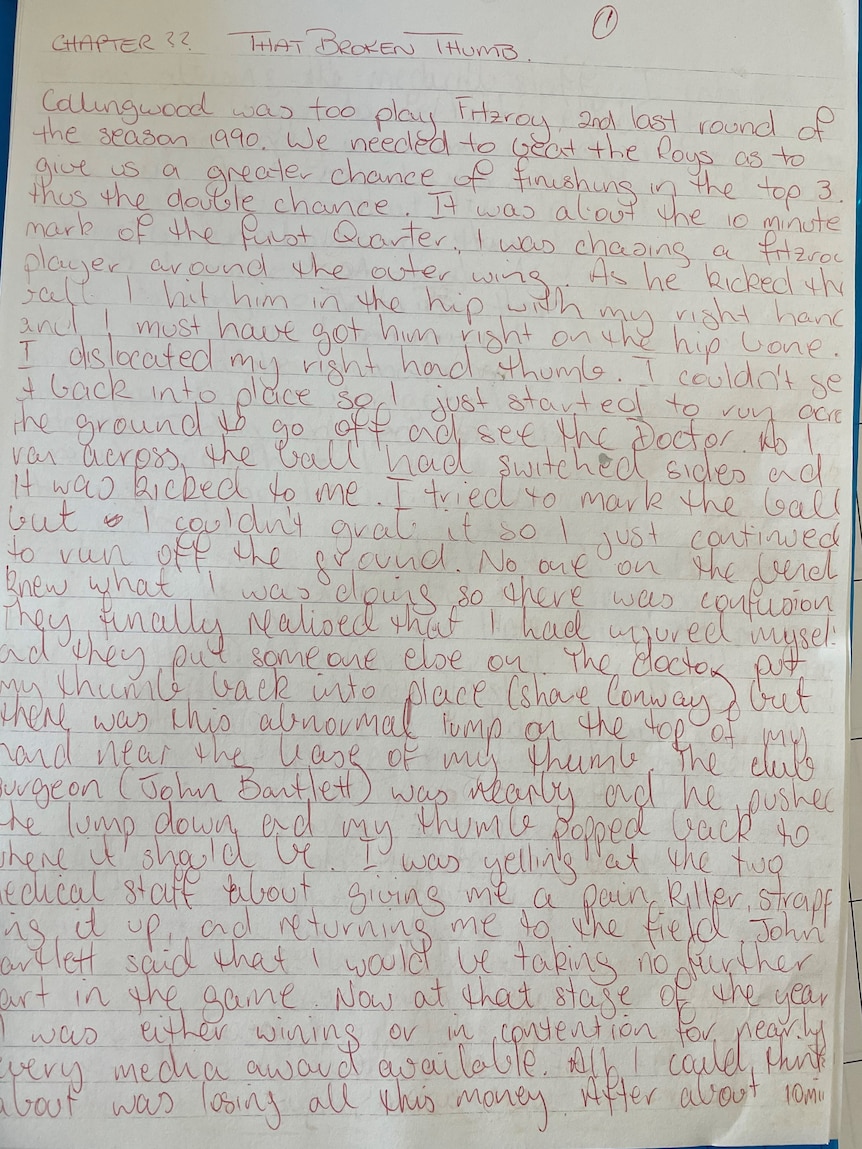 ①
CHAPTER ?? THAT BROKEN THUMB.
Collingwood was too play Fitzroy, 2nd last round of
the season 1990. We needed to beat the Roys as to
give us a greater chance of finishing in the top 3.
thus the double chance. It was about the 10 minute
mark of the first Quarter. I was chasing a fitzroc
player around the outer wing. As he kicked th
ball I hit him in the hip with my right hand
and I must have got him right on the hip bone.
I dislocated my right hand thumb. I couldn't ge
t back into place so I just started to run acro
the ground to go off ad see the Doctor. As I
ran across, the ball had switched sides ad
it was kicked to me. I tried to mark the ball
but I couldn't grab it so I just continued
to run off the ground. No one on the bench
knew what I was doing so there was confusion
They finally realised that I had injured mysel
ad they put someone else on. The doctor put
my thumb back into place (Shane Conway) but
there was this abnormal lump on the top of my
hand near the base of my thumb. The club
surgeon (John Bartlett) was nearby ad he pushed
the lump down ad my thumb popped back to
where it should be. I was yelling at the two
edical staff about giving me a pain killer, strapp
ing it up, ad returning me to the field. John
artlett said that I would be taking no further
art in the game. Now at that stage of the year
I was either wining or in contention for nearly
every media award available. All I could think
about was losing all this money. After about 10min